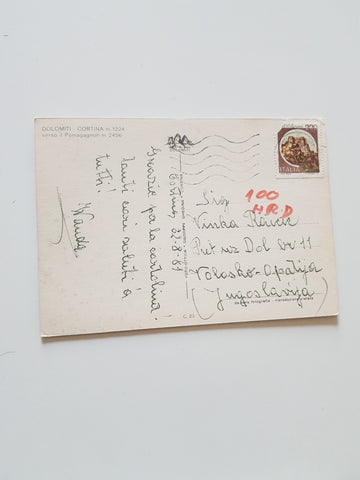 DOLOMITI - CORTINA m 1224
verso il Pomagagnon m 2456
Cortina, 22-8-81
Grazie per la cartolina!
Tanti cari saluti a
tutti.
Wanda
DOLOMITI
ITALIA
100
HRD
Sig
Vinka
Put uz Dol br 11
Volosko-Opatija
(Jugoslavija)
C 23